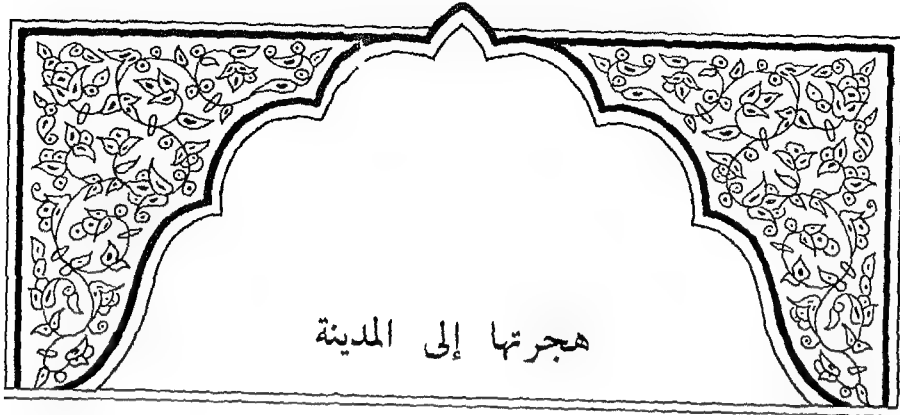 هجرتها إلى المدينة